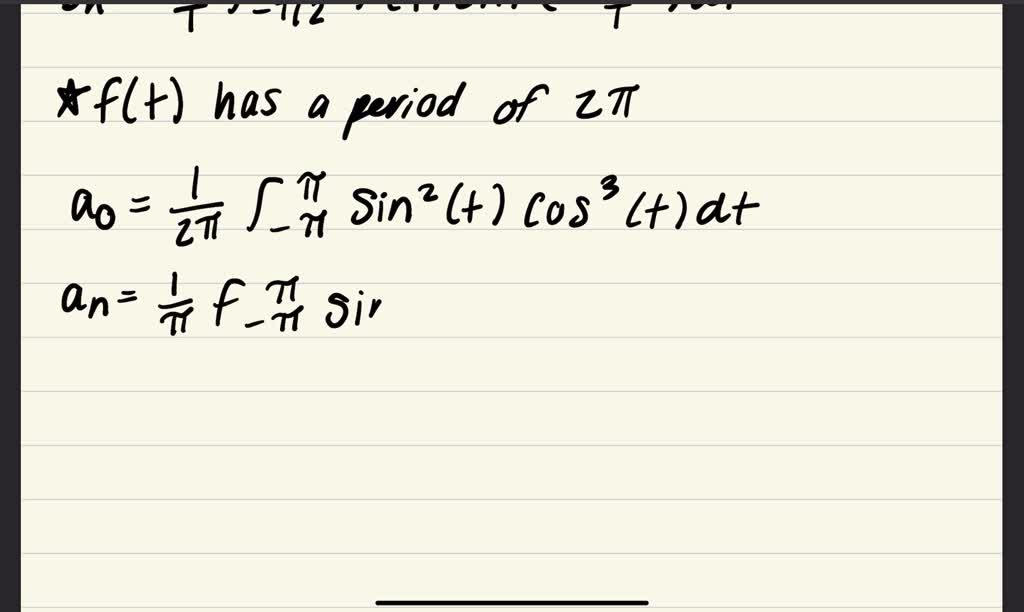 ★f(t) has a period of 2π
a₀ = 1/2π ∫₋π^π sin²(t) cos³(t) dt
aₙ = 1/π ∫₋π^π sin